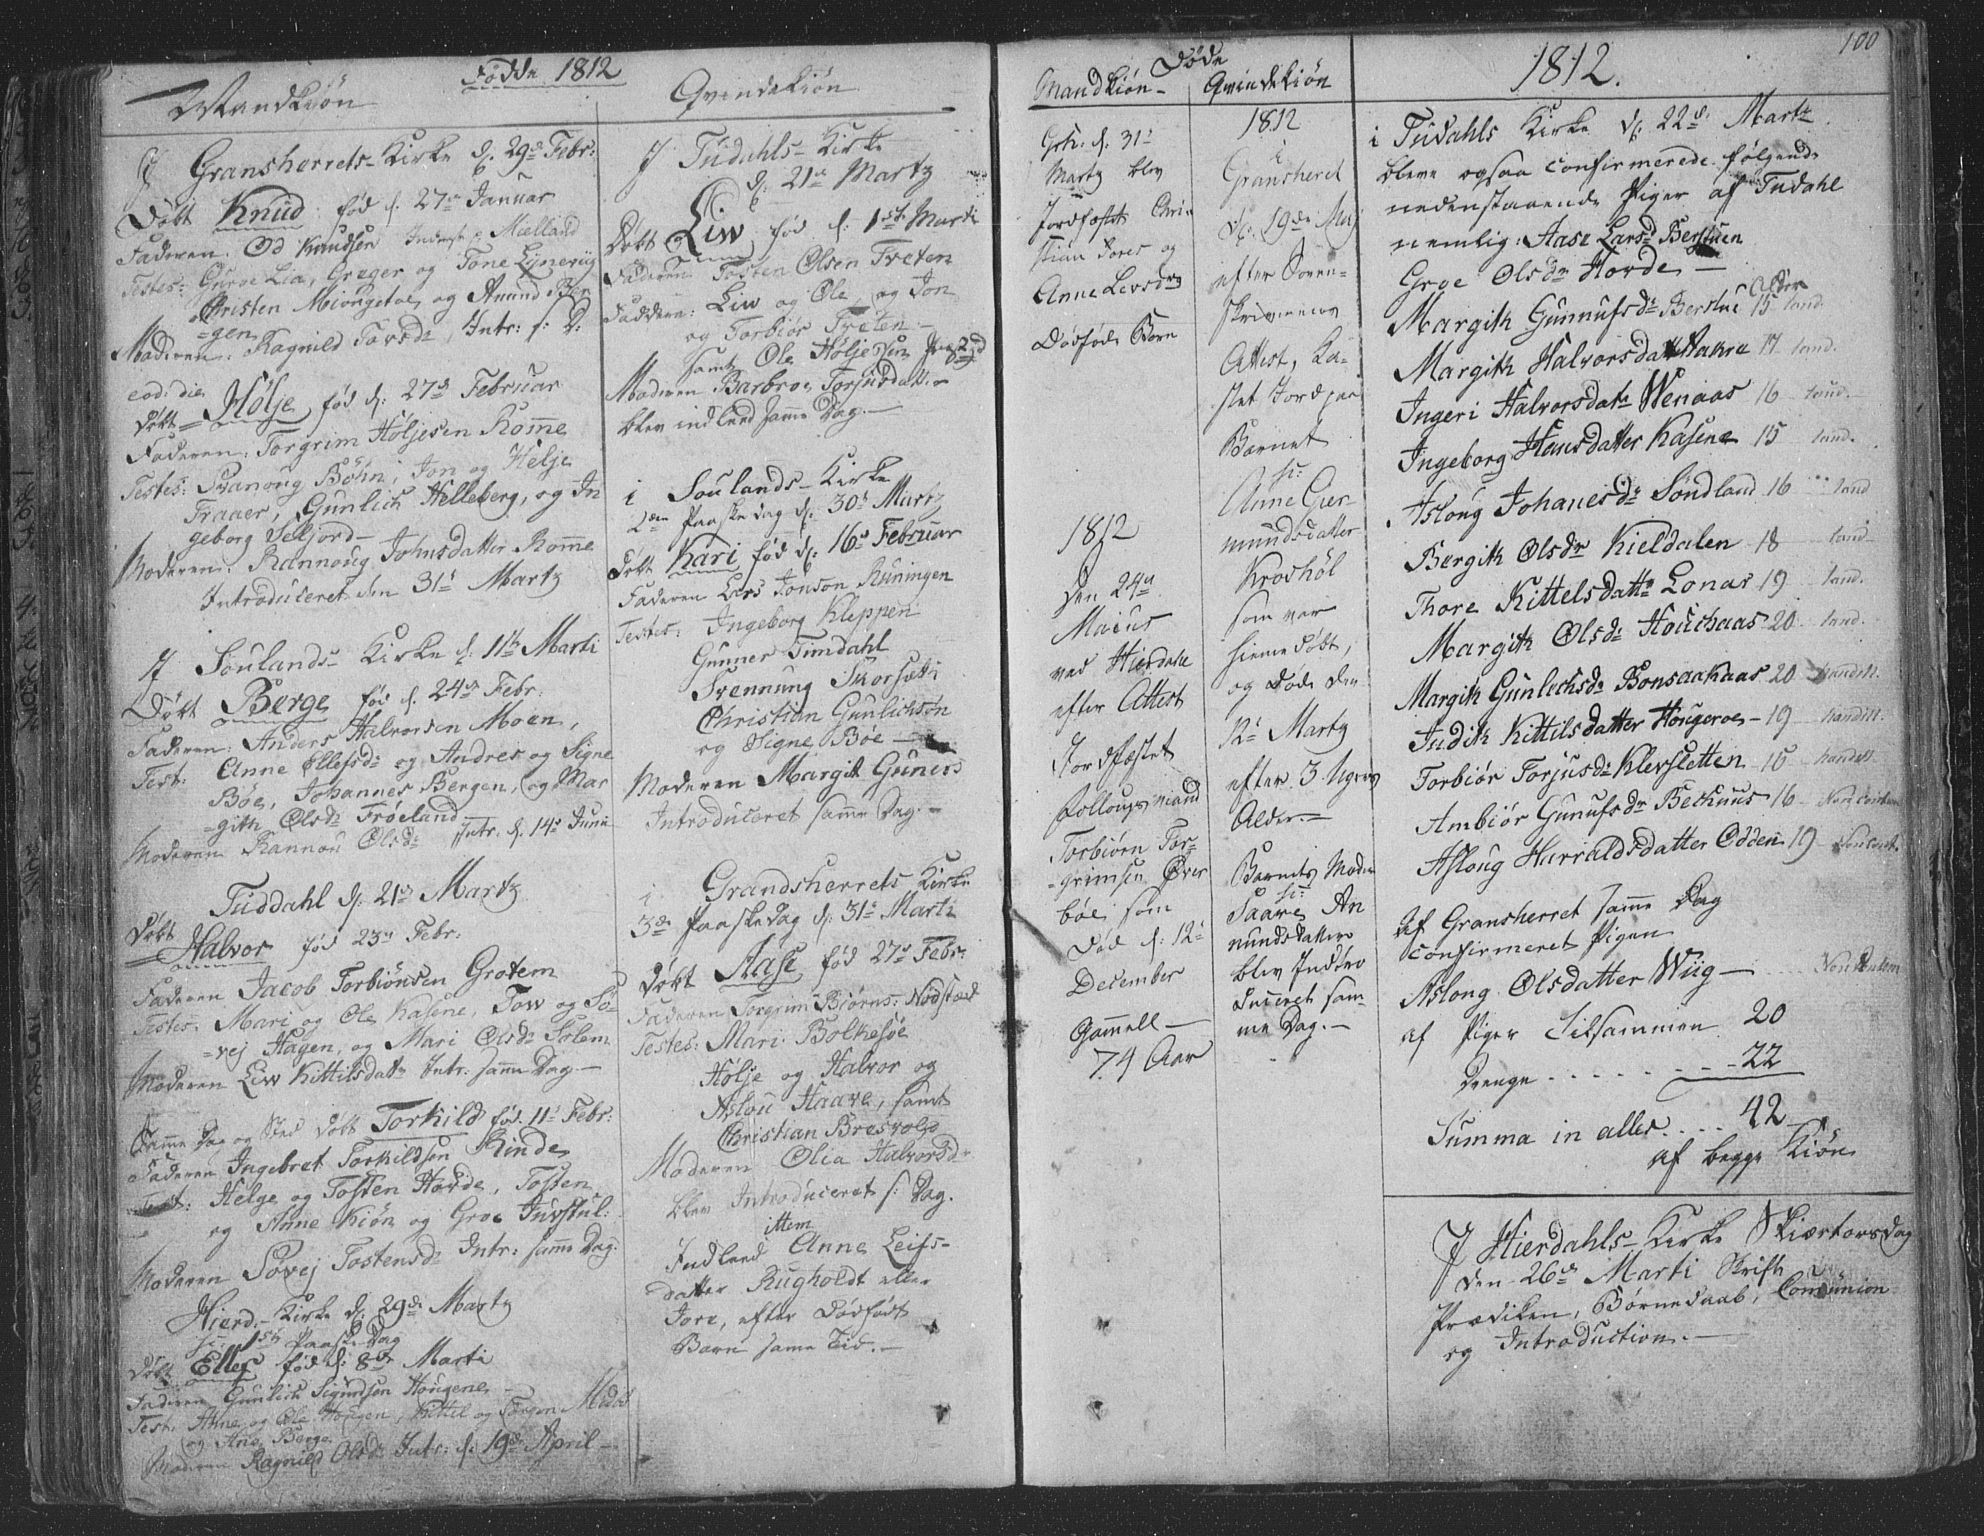 Födde 1812
Mandkiön
J Gransherrets-Kirke d. 29de Febr:
Döbt Knud föd d. 27de Januar
Faderen: Od Knudsen Mælland
Testes: Guroe Lia, Greger og Tone Lynerug
Christen Miongstøe og Anund Ber
=gen
Moderen: Ragnild Tovsdr, Intr: s: D:
eod: die
Döbt Hölje föd d: 27de Februar
Faderen: Torgrim Höljesen Romme
Testes: Svanoug Böhn, Jon og Helje
Traaer, Gunlich Helleberg, og In
geborg Seljord-
Moderen: Rannoug Johnsdatter Romme
Introduceret den 31te Martz
J Soulands-Kirke d: 11te Marti
Döbt Berge föd d. 24de Febr:
Faderen: Anders Halvorsen Moen,
Test: Anne Ellefsdr og Andres og Signe
Böe, Johannes Bergen, og Mar
=gith Olsdr Fröeland
Moderen Rannou Olsdr Intr: d. 14de Junii
Tuddahl d. 21de Martz
Döbt
Halvor föd 23de Febr:
Faderen Jacob Torbiönsen Grotem
Testes: Mari og Ole Kasene, Tow og So
=vej Hagen, og Mari Olsdr Solem
Moderen Liw Kittilsdatr Intr: samme Dag-
Samme Dag og Sted döbt Torkild föd 11te Febr:
Faderen Ingebret Torkildsen Rinde
Test: Helge og Tosten Hovde, Tosten
og Anne Kiön og Groe Juvstul:
Moderen Sovej Tostensdr Intr: samme Dag:
Hierd-Kirke d. 29de Martz
1ste Paaske Dag
Döbt Ellef föd d: 8de Marti
Faderen Gunlich Sigurdsen Hougene
Test. Anne og Ole Hougen, Kittel og Jörgen Midbö
og Berge
Moderen Ragnild Olsdr Intr: d. 19de April-
Qvindekiön
J Tudahls-Kirke
d: 21de Martz
Döbt Liw föd d: 1ste Marti
Faderen Tosten Olsen Treten
Faddere: Liw og Ole og Jon
og Torbiör Treten-
samt Ole Höljessen
Moderen Barbroe Torjusdatter
blev indleed samme Dag.-
i Soulands-Kirke
2den Paaske Dag d. 30te Martz
Döbt Kari föd d. 16de Februar
Faderen Lars Jonson Runingen
Testes: Ingeborg Kleppen
Gunner Tundahl
Svennung Skorsæt
Christian Gunlichson
og Signe Böe-
Moderen Margit Guners
Introduceret samme Dag.-
i Grandsherrets Kirke
3de Paaske Dag d. 31te Marti
Döbt Aase föd 27de Febr:
Faderen Torgrim Björns: Nodstad
Testes: Mari Bolkesöe
Hölje og Halvor og
Aslou Haave, samt
Christian Bresvold
Moderen Olia Halvorsdr
blev Introduceret s: Dag.
ittem
Indleed Anne Leifs-
datter Rugholdt eller
Jore, efter dödfödt
Barn samme Tid.-
Döde
Mandkiön-
Grh. d. 31te
Martz blev
Jordfæstet Chri=
stian Jores og
Anne Levsdrs
Dödfödte Börn
1812
den 24de
Maius
ved Hierdahl
efter Attest
Jordfæstet
follougsmand
Torbiörn Tor-
=grimsen Över
böe, som
Död d: 12te
December
Gammell-
74 Aar
Qvindekiön
1812
i
Gransheret
d. 19de Maj
efter Soren-
skriverens
Attest, Ka-
stet Jord paa
Barnet
Anne Guer
mundsdatter
Kroshöl
som var
hiemmedöbt,
og Döde den
12te Martz
efter 3 Ugers
Alder.-
Barnets Moder
Saave An
nundsdatter
blev Intro
duceret sam-
me Dag.-
100
1812.
i Tudahls Kirke d. 22de Martz
bleve ogsaa confirmerede fölgende
nedenstaaende Piger af Tudahl
nemlig: Aase Larsdr Berstuen
Groe Olsdr Hovde-
Alder
Margith Gunnufsdr Berstue 15 laud.
Margith Halvorsdatr Aakre 17 laud.
Ingeri Halvorsdatr Wenaas 16 laud.
Ingeborg Hansdatter Kasene 15 laud.
Aslong Johanesdr Söndland 16 laud
Bergith Olsdr Kieldalen 18 laud
Thore Kittelsdattr Lonar 19 laud.
Margith Olsdr Houchaas 20 laud.
Margith Gunlechsdr Bonsaakaas 20 haudill.
Judith Kittilsdatter Hougeroe-19 haudill.
Torbiör Torjusdr Klevsletten-16 haudill.
Ambiör Gunufsdr Bechuus 16 Non contem
Aslong Harraldsdatter Odden 19 Noncont.
Af Gransherret samme Dag
confirmeret Pigen
Aslong Olsdatter Wiig- Non Contem
af Piger Tilsammen 20
Drenge . . . . . . . . 22
Summa in alles . . . . 42
af begge Kiön
J Hierdahls-Kirke Skiærtorsdag
den 26de Marti Skrifte
Prædiken, Börnedaab, Comunion
og Introduction.-